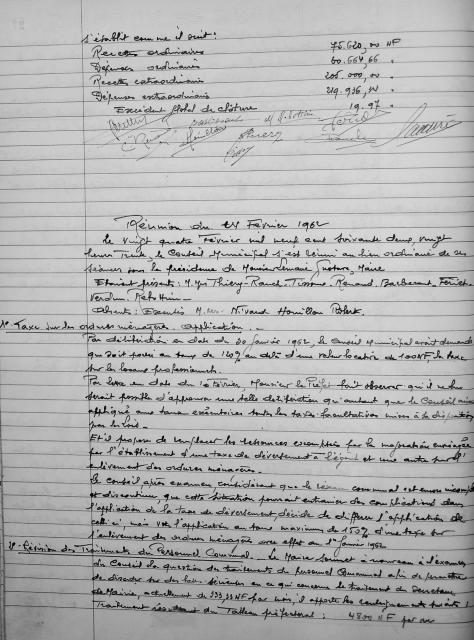 s'établit comme il suit:
Recettes ordinaires 75.620,00 NF
Dépenses ordinaires 60.664,66 "
Recettes extraordinaires 205.000,00 "
Dépenses extraordinaires 219.936, "
Excédent global de clôture 19.97 "
Réunion du 24 Février 1962
Le vingt quatre Février mil neuf cent soixante deux, vingt
heures Trente, le Conseil Municipal s'est réuni au lieu ordinaire de ses
séances sous la présidence de Monsieur Gustave, Maire
Etaient présents: M. Thiéry - Rauch - Tissons - Renaud - Barbesant -
Verdun
Absents: Excusés M. Nivard Houillon Robert.
1° Taxe sur les ordures ménagères. Application.
Par délibération en date du 20 Janvier 1962, le Conseil Municipal avait demandé
que soit portée au taux de 120% au delà d'une valeur locative de 1000 NF la taxe
sur les locaux professionnels.
Par lettre en date du 10 Février, Monsieur le Préfet fait observer qu'il ne lui
serait possible d'approuver une telle délibération qu'autant que le Conseil aurait
appliqué aux taux exécutoires toutes les taxes facultatives mises à sa disposition
par la loi.
Et il propose de remplacer les ressources escomptées par la majoration envisagée
par l'établissement d'une taxe de déversement à l'égout et une autre pour l'
enlèvement des ordures ménagères.
Le Conseil, après examen, considérant que le réseau communal est encore incomplet
et discontinu, que cette situation pourrait entrainer des complications dans
l'application de la taxe de déversement, décide de différer l'application de
celle-ci, mais vote l'application au taux maximum de d'une taxe sur
l'enlèvement des ordures ménagères avec effet au 1er Janvier 1962
2° Révision des Traitements du Personnel Communal. - Le Maire soumet à nouveau à l'examen
du Conseil la question des traitements du personnel Communal afin de permettre
de discuter sur des bases sérieuses en ce qui concerne le traitement du Secrétaire
de Mairie, actuellement de 333,33 NF par mois, il apporte les renseignements suivants:
Traitement résultant du Tableau préfectoral: 4800 NF par an